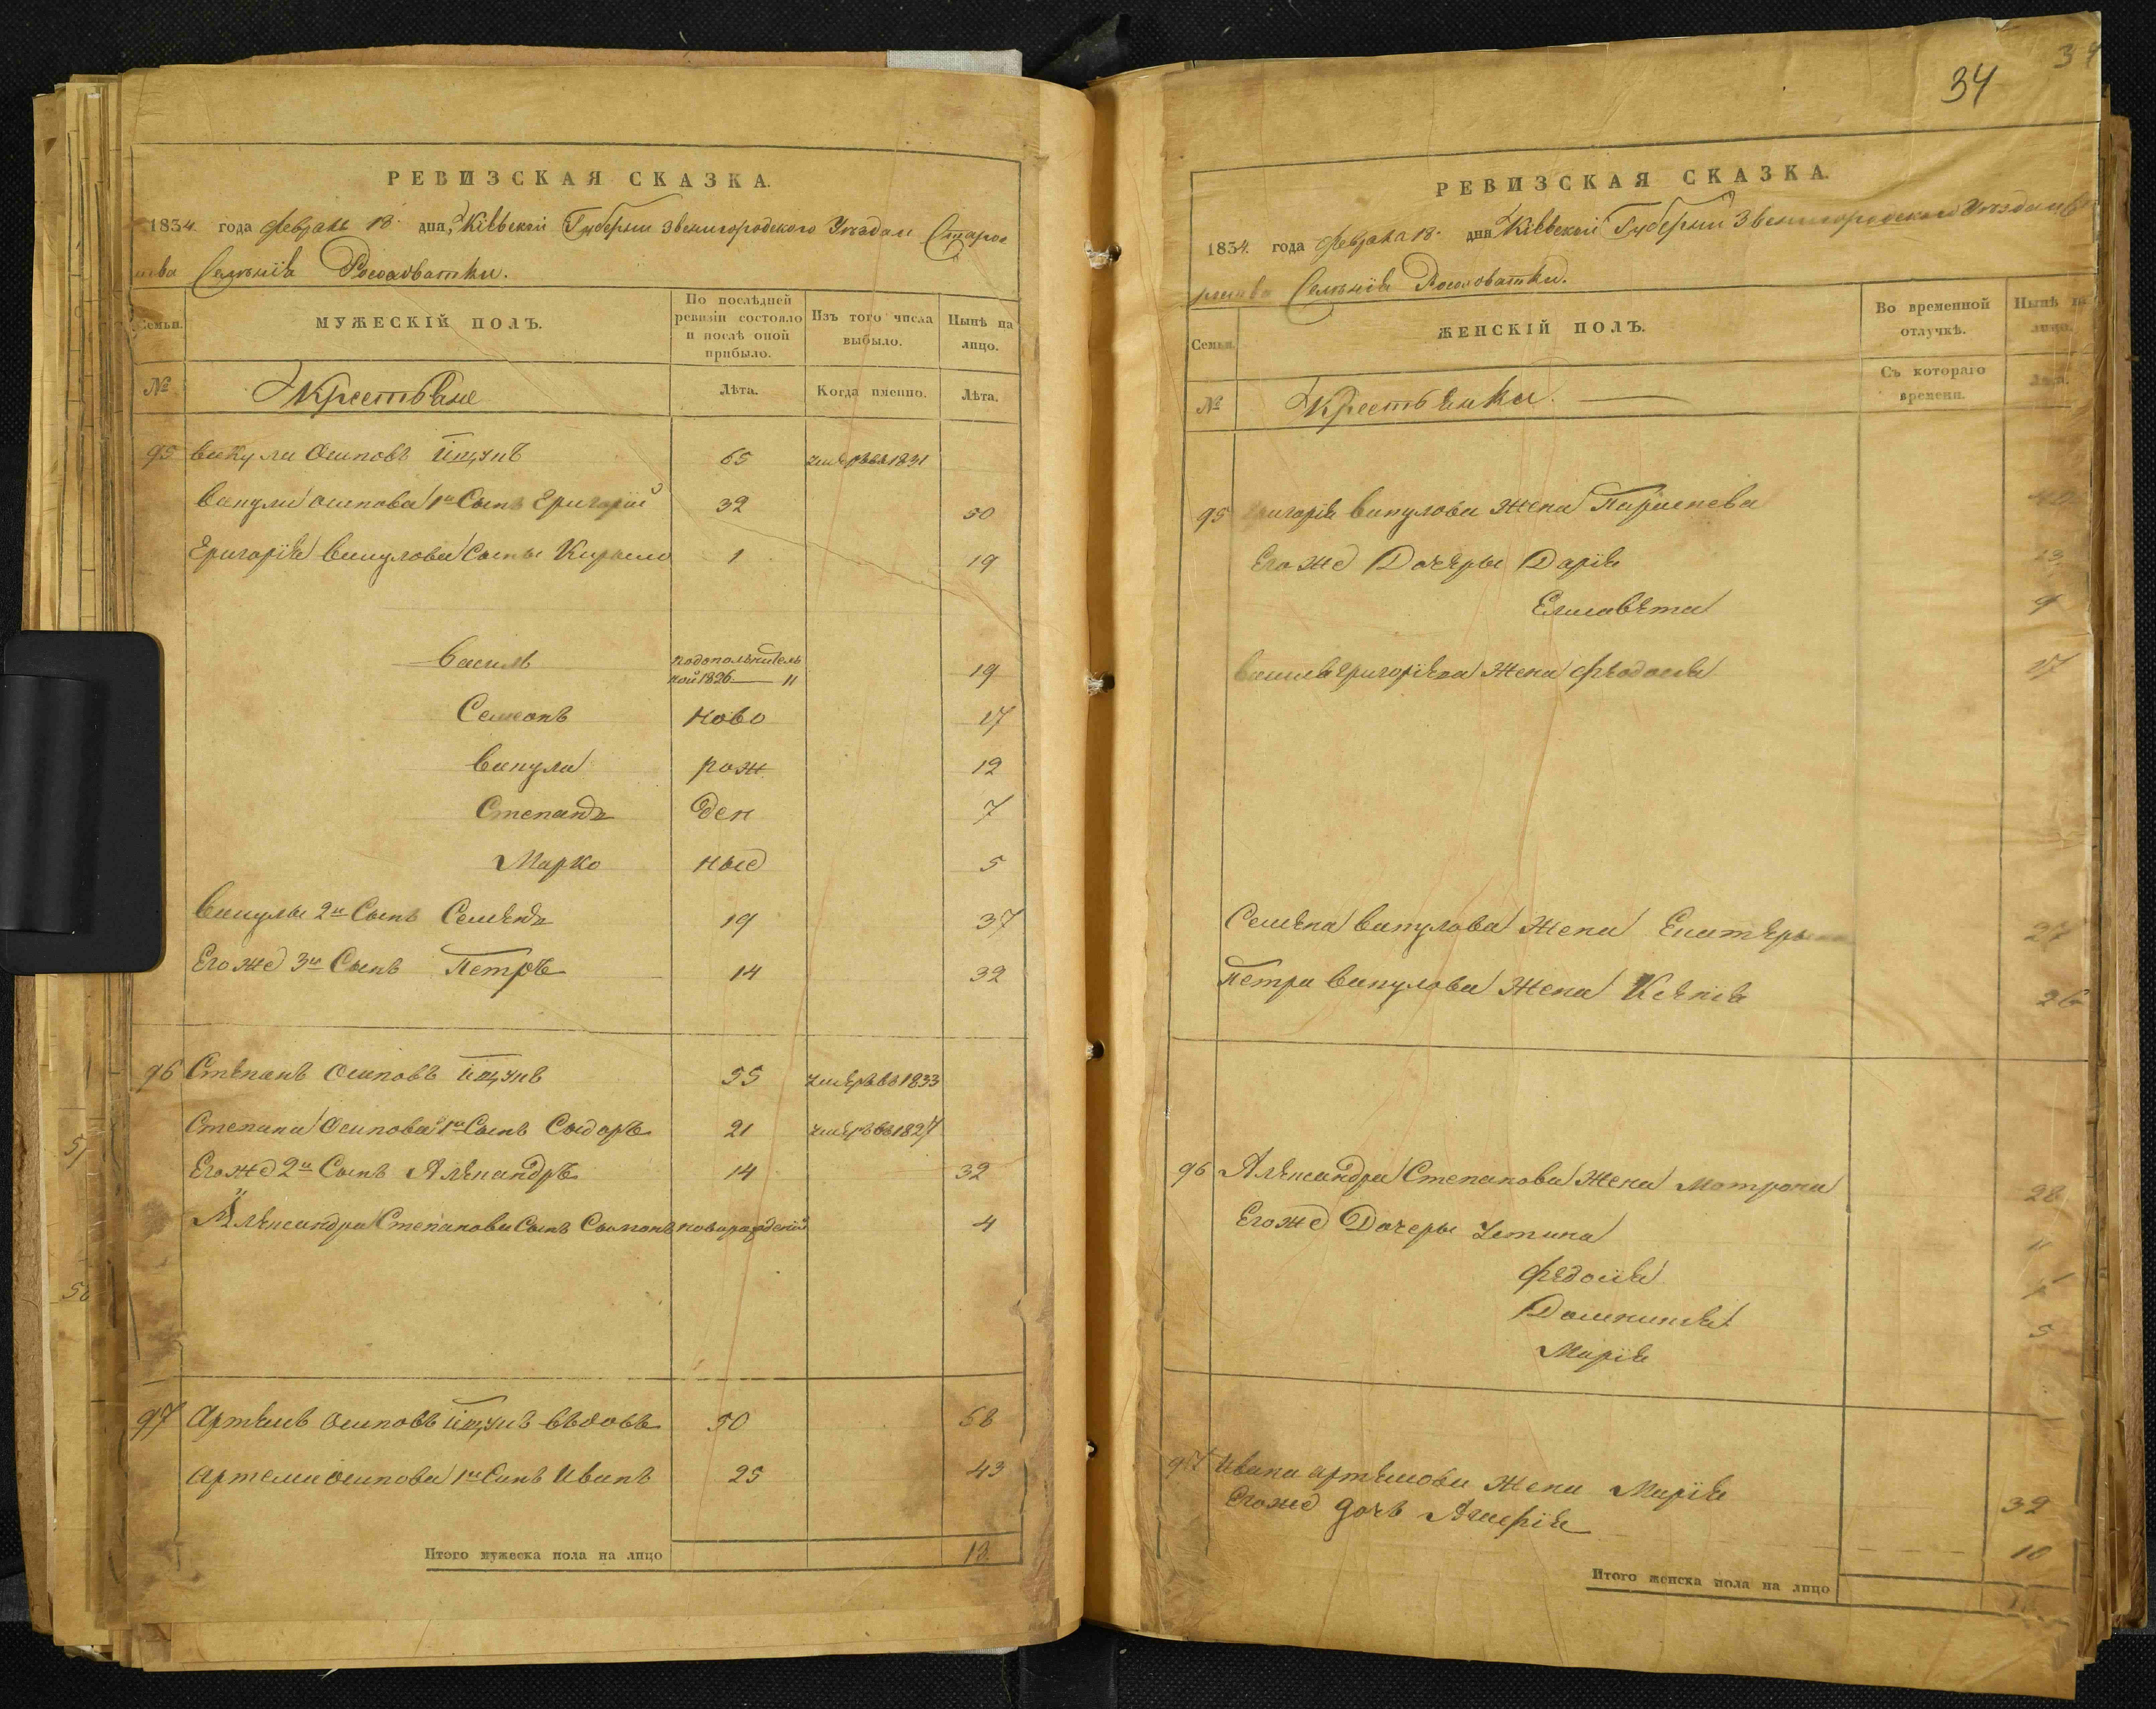 РЕВИЗСКАЯ СКАЗКА.
1834. года февраля 18. дня, Кіевской Губерніи Звенигородского Уезда Старос
тва Селенія Росоховатки.
Семьи. МУЖЕСКІЙ ПОЛЪ. По послѣдней ревизіи состояло и послѣ оной прибыло. Изъ того числа выбыло. Нынѣ на лицо.
№ Крестьяне Лѣта. Когда именно. Лѣта.
95 Викули Осиповъ 65 умеръ въ 1831
Викули Осипова 1й Сынъ Григорій 32 50
Григорія Викулова Сыны Кирило 1 19
Василь подополнитель
ной 1826 11 19
Семионъ ново 17
Викула рож 12
Степанъ ден 7
Марко ные 5
Викулы 2й Сынъ Семенъ 19 37
Его же 3й Сынъ Петръ 14 32
96 Степанъ Осиповъ 55 умеръ въ 1833
Степана Осипова 1й Сынъ Сыдоръ 21 умеръ въ 1827
Его же 2й Сынъ Александръ 14 32
Александра Степанова Сынъ новорожденій 4
97 Артемъ Осиповъ вдовъ 50 68
Артема Осипова 1й Сынъ Иванъ 25 43
Итого мужеска пола на лицо 13
34
34
РЕВИЗСКАЯ СКАЗКА.
1834. года февраля 18. дня Кіевской Губерніи Звенигородского Уезда
Селенія Росоховатки.
Семьи. ЖЕНСКІЙ ПОЛЪ. Во временной отлучкѣ. Нынѣ на лицо.
№ Крестьянки. Съ котораго времени. Лѣта.
95 Григорія Викулова Жена
Его же Дочеры Дарія 23
Елисавета 9
Василя Григоріева Жена Феодосія 17
Семена Викулова Жена Екатерына 27
Петра Викулова Жена Ксенія 26
96 Александра Степанова Жена Мотрона 28
Его же Дочеры Устина 11
Федосія
Домникія 5
Марія
97 Ивана Артемова Жена Марія 39
Его же дочь 10
Итого женска пола на лицо